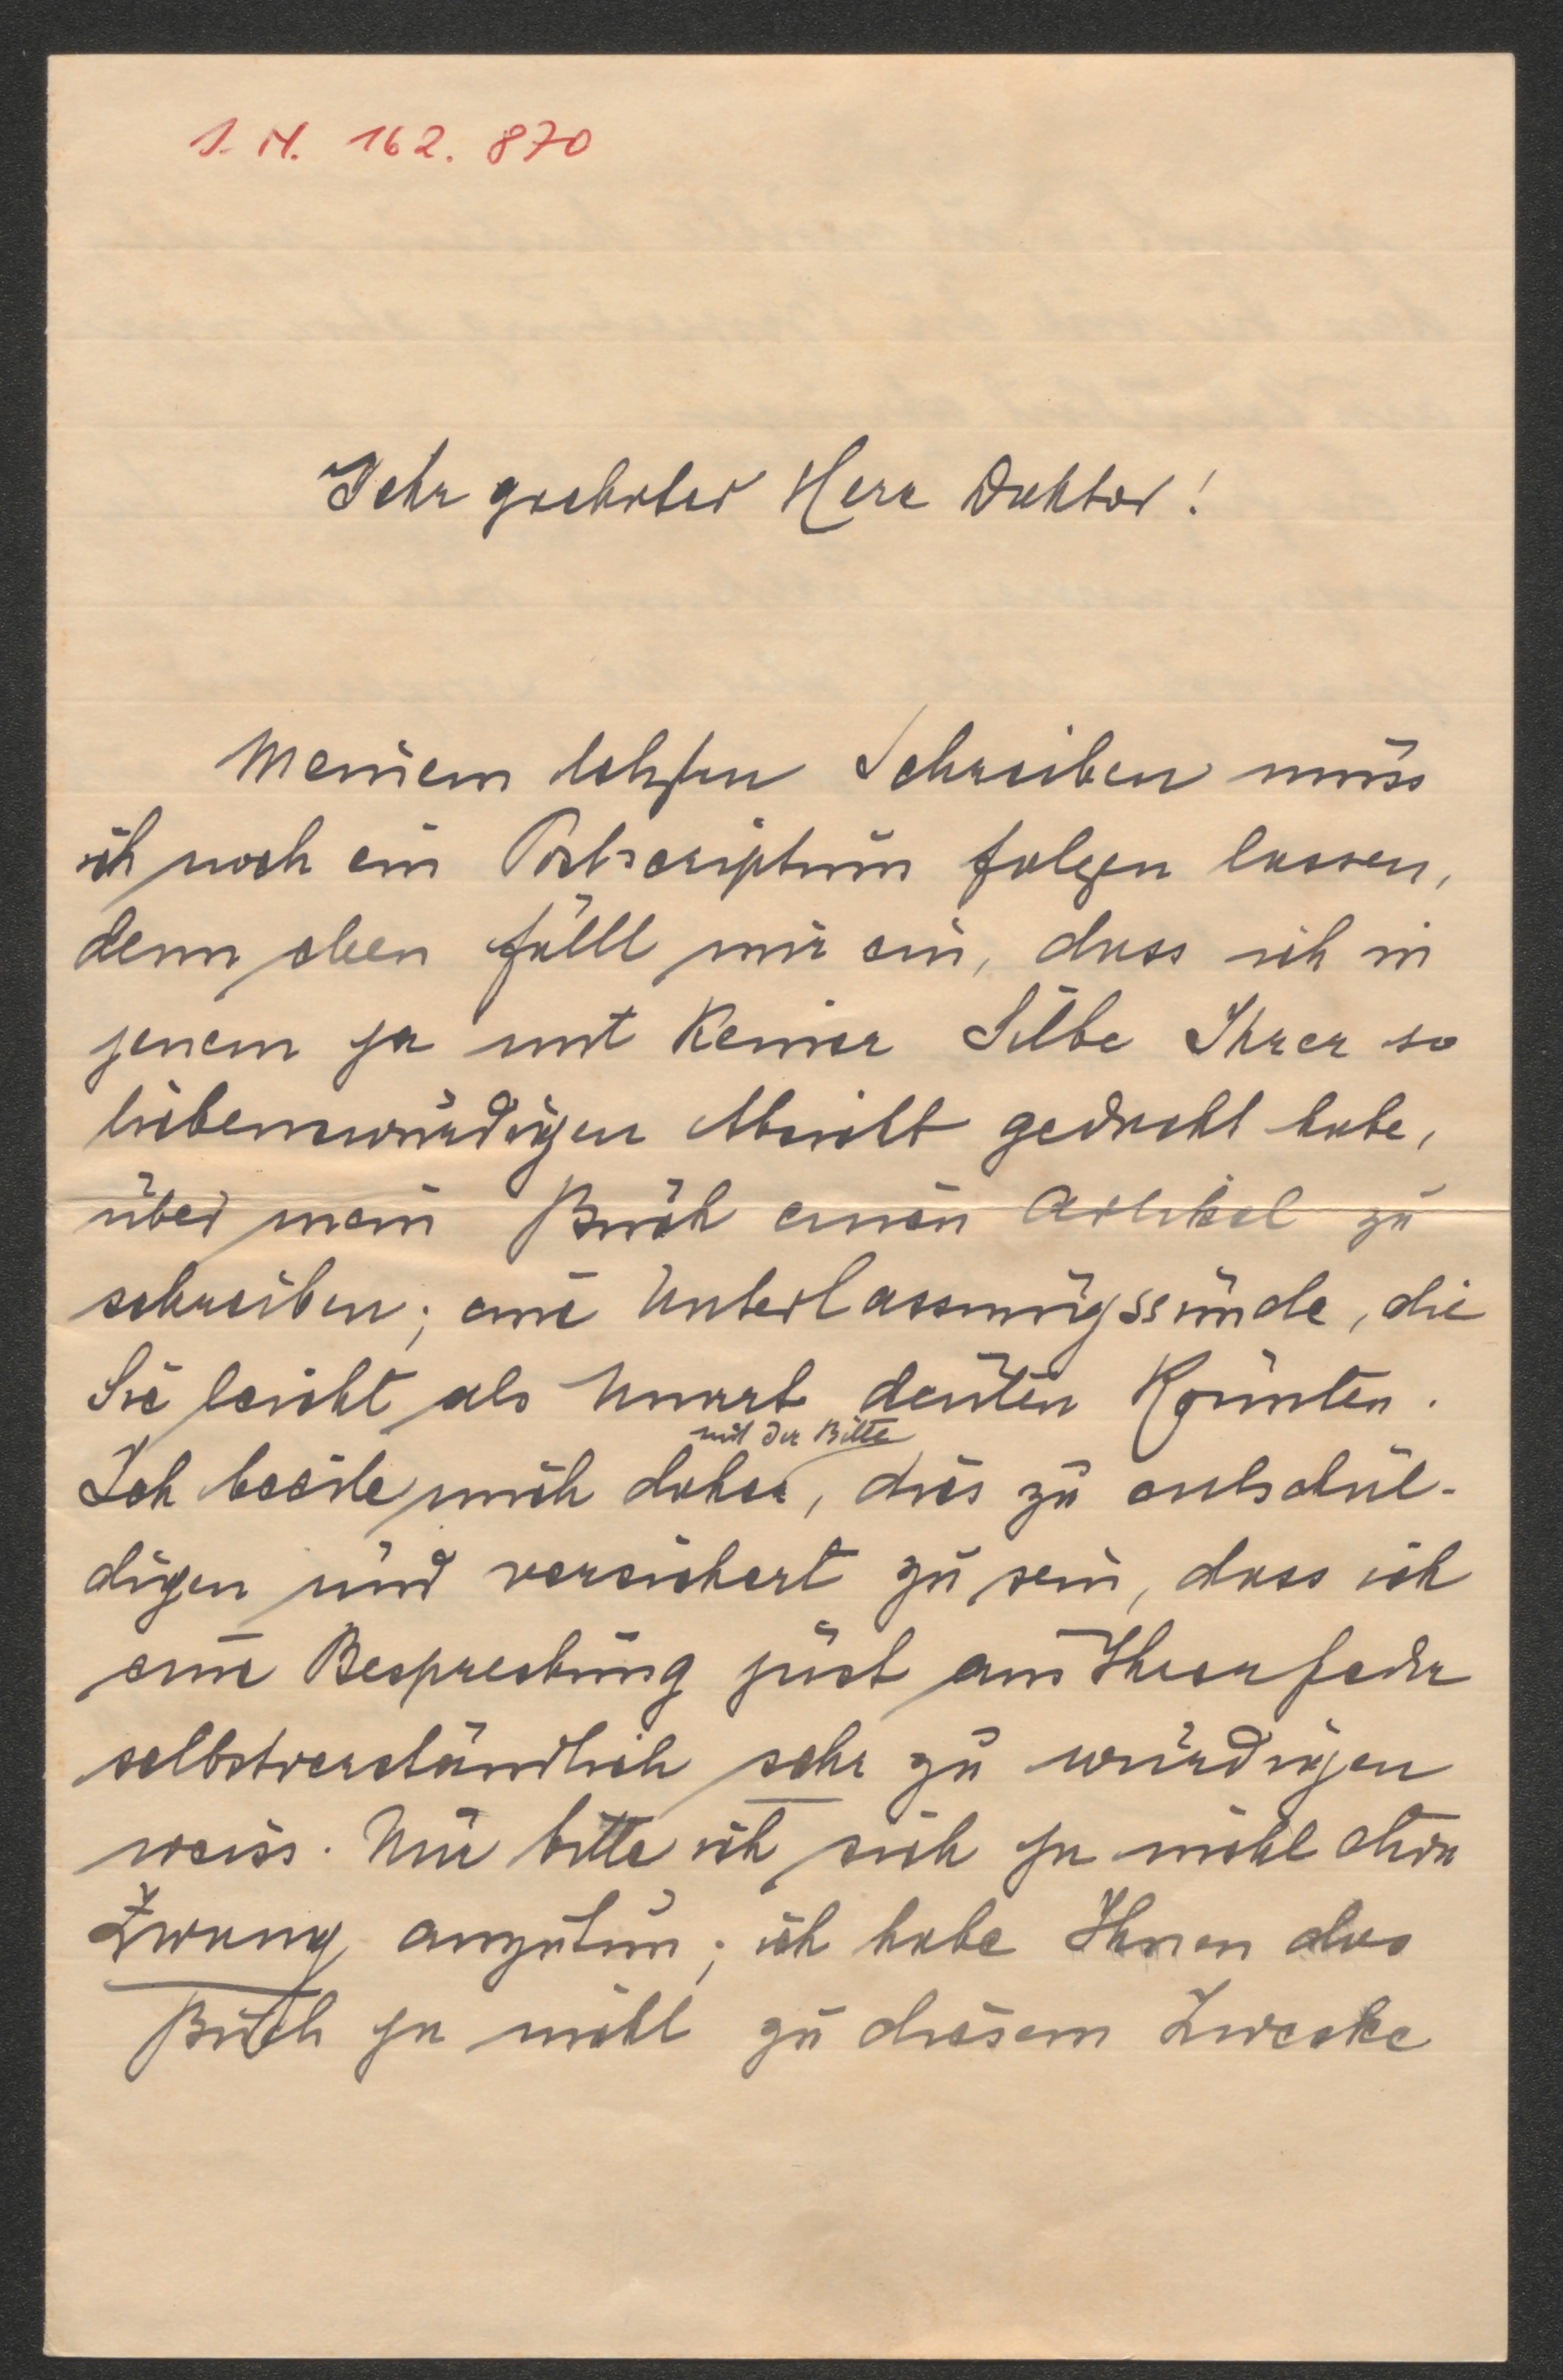 I. N. 162. 870
Sehr geehrter Herr Doktor!
Meinem letzten Schreiben muss
ich noch ein Postscriptum folgen lassen,
denn eben fällt mir ein, dass ich in
jenem ja mit keiner Silbe Ihrer so
liebenswürdigen Absicht gedacht habe,
über mein Buch einen Artikel zu
schreiben; eine Unterlassungssünde, die
Sie leicht als Unart deuten könnten.
mit der Bitte
Ich beeile mich daher, dies zu entschul-
digen und versichert zu sein, dass ich
eine Besprechung just aus Ihrer Feder
selbstverständlich sehr zu würdigen
weiss. Nur bitte ich sich ja nicht etwa
Zwang anzutun; ich habe Ihnen das
Buch ja nicht zu diesem Zwecke